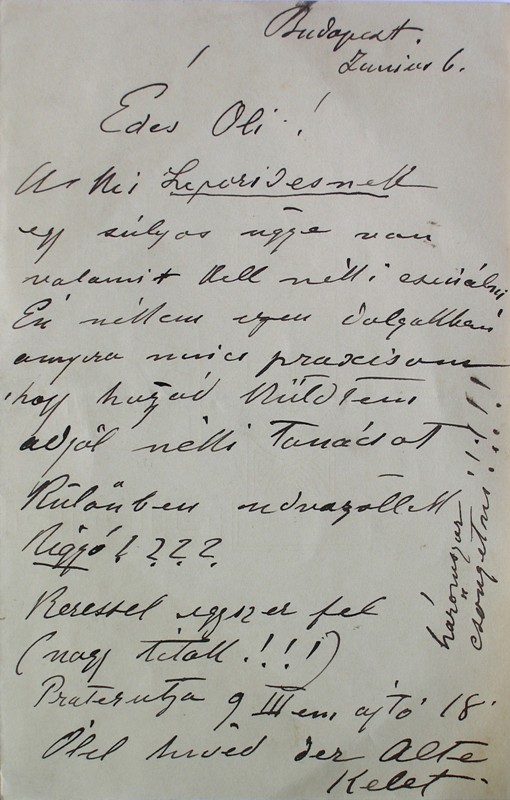 Budapest.
Junius 6.
Édes Oli!
A kis Leporidesnek
egy súlyos ügye van
valamit kell neki csinálni
Én nékem ezen dolgokban
annyira nincs praxisom
hogy hozzád küldtem
adjál neki tanácsot
Különben üdvözöllek
Rigyó! ???
Keressel egyszer fel
(nagy titok!!!)
Prater utza 9 III em ajtó 18
Ölel hived der Alte
Kelet.
háromszor
csöngetni!!!!!